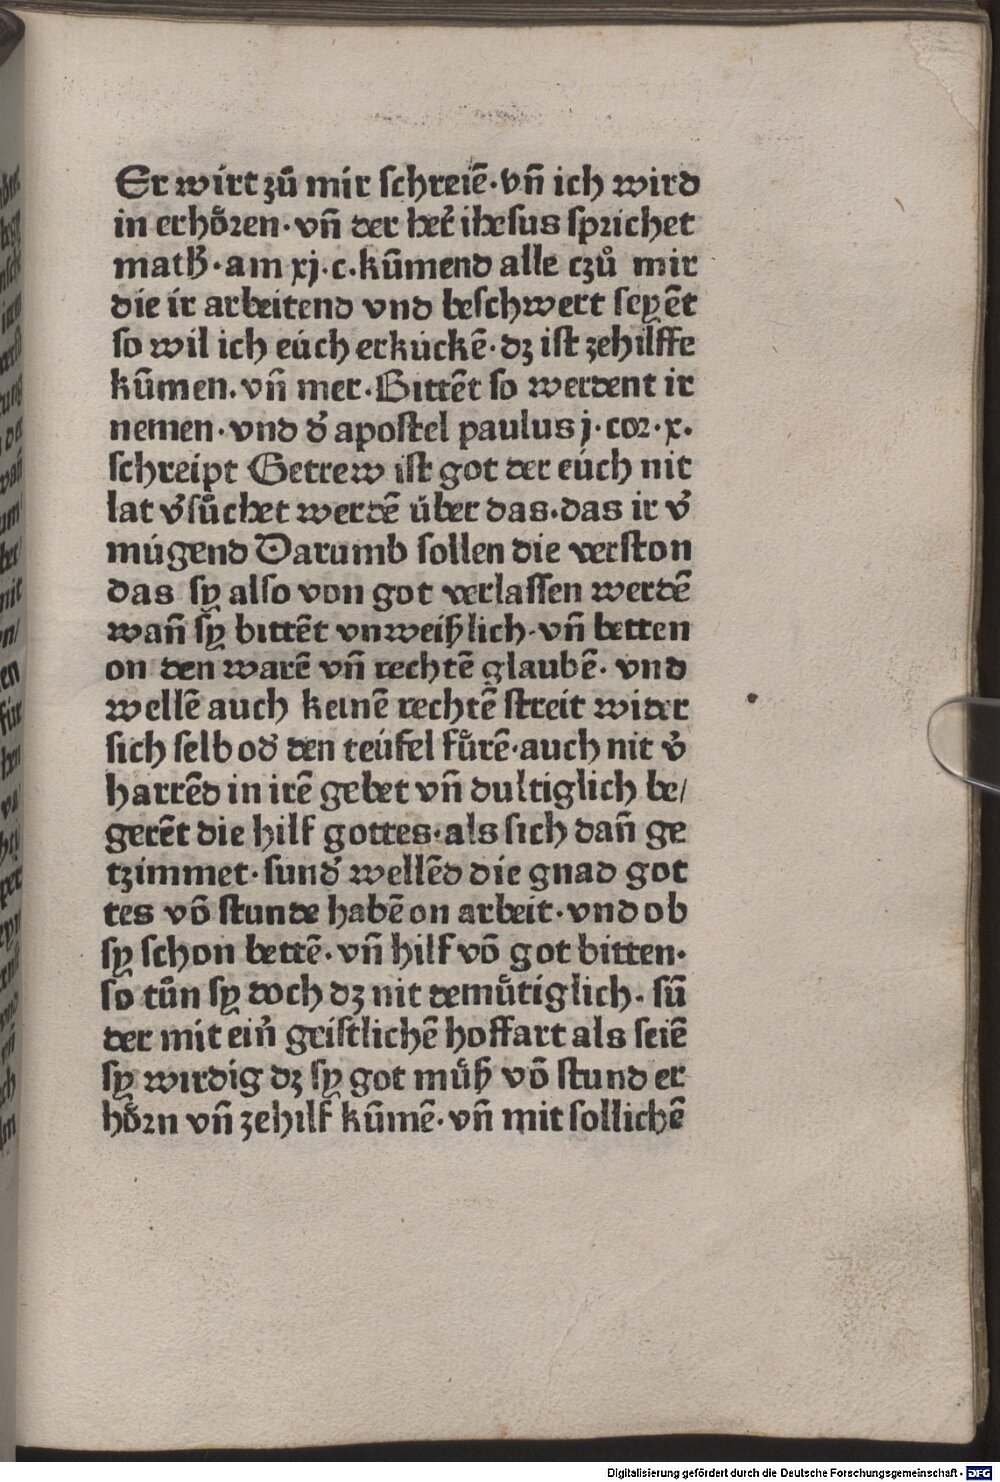 Er wirt zů mir schreiē·vñ ich wird
in erhözen·vñ der her̓ ihesus sprichet
math̄·am xj·c·kūmend alle czů mir
die ir arbeitend vnd beschwert seyēt
so wil ich eúch erkúckē·dz ist zehilffe
kūmen.vñ mer·Bittēt so werdent ir
nemen·vnd d̓ apostel paulus j·cor·x·
schreipt Getrew ist got der eúch nit
lat v̓sůchet werdē úber das·das ir v̓
múgend Darumb sollen die verston
das sy also von got verlassen werdē
wañ sy bittēt vnweißlich·vñ betten
on den warē vñ rechtē glaubē· vnd
wellē auch keinē rechtē streit wider
sich selb od̓ den teúfel fůrē·auch nit v̓
harrēd in irē gebet vñ dultiglich be/
gerēt die hilf gottes·als sich dañ ge
tzimmet·sund̓ wellēd die gnad got
tes vō stunde habē on arbeit·vnd ob
sy schon bettē·vñ hilf vō got bitten·
so tůn sy doch dz nit demůtiglich·sū
der mit ein̓ geistlichē hoffart als seiē
sy wirdig dz sy got můß vō stund er
hörn vñ zehilf kūmē·vñ mit sollichē
Digitalisierung gefördert durch die Deutsche Forschungsgemeinschaft - DFG